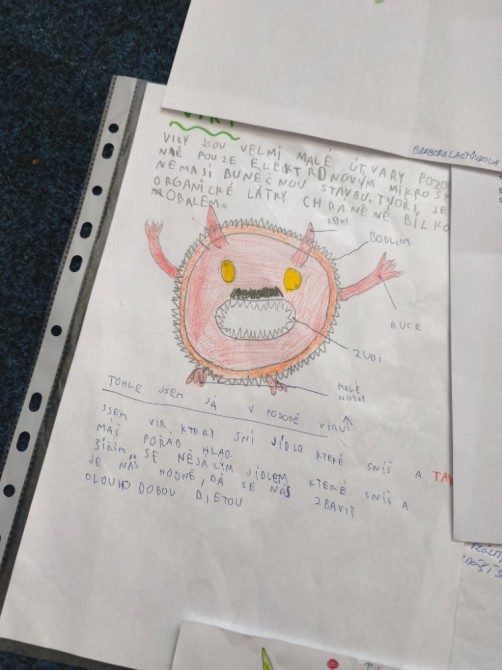 VIRY
VIRY JSOU VELMI MALÉ ÚTVARY POZO
NÉ POUZE ELEKTRONOVÝM MIKROSK
NEMAJÍ BUNĚČNOU STAVBU, TVOŘÍ JE
ORGANICKÉ LÁTKY CHRÁNĚNÉ BÍLKO
OBALEM.
BODLIN
RUCE
ZUBI
MALÉ
TOHLE JSEM JÁ V PODOBĚ VIRU
JSEM VIR, KTERÝ SNÍ JÍDLO KTERÉ SNÍŠ A TA
MÁŠ POŘÁD HLAD.
ŠÍŘÍM SE NĚJAKÝM JÍDLEM KTERÉ SNÍŠ A
JE NÁS HODNĚ, DÁ SE NÁS ZBAVIT
DLOUHODOBOU DIETOU
BARBORA